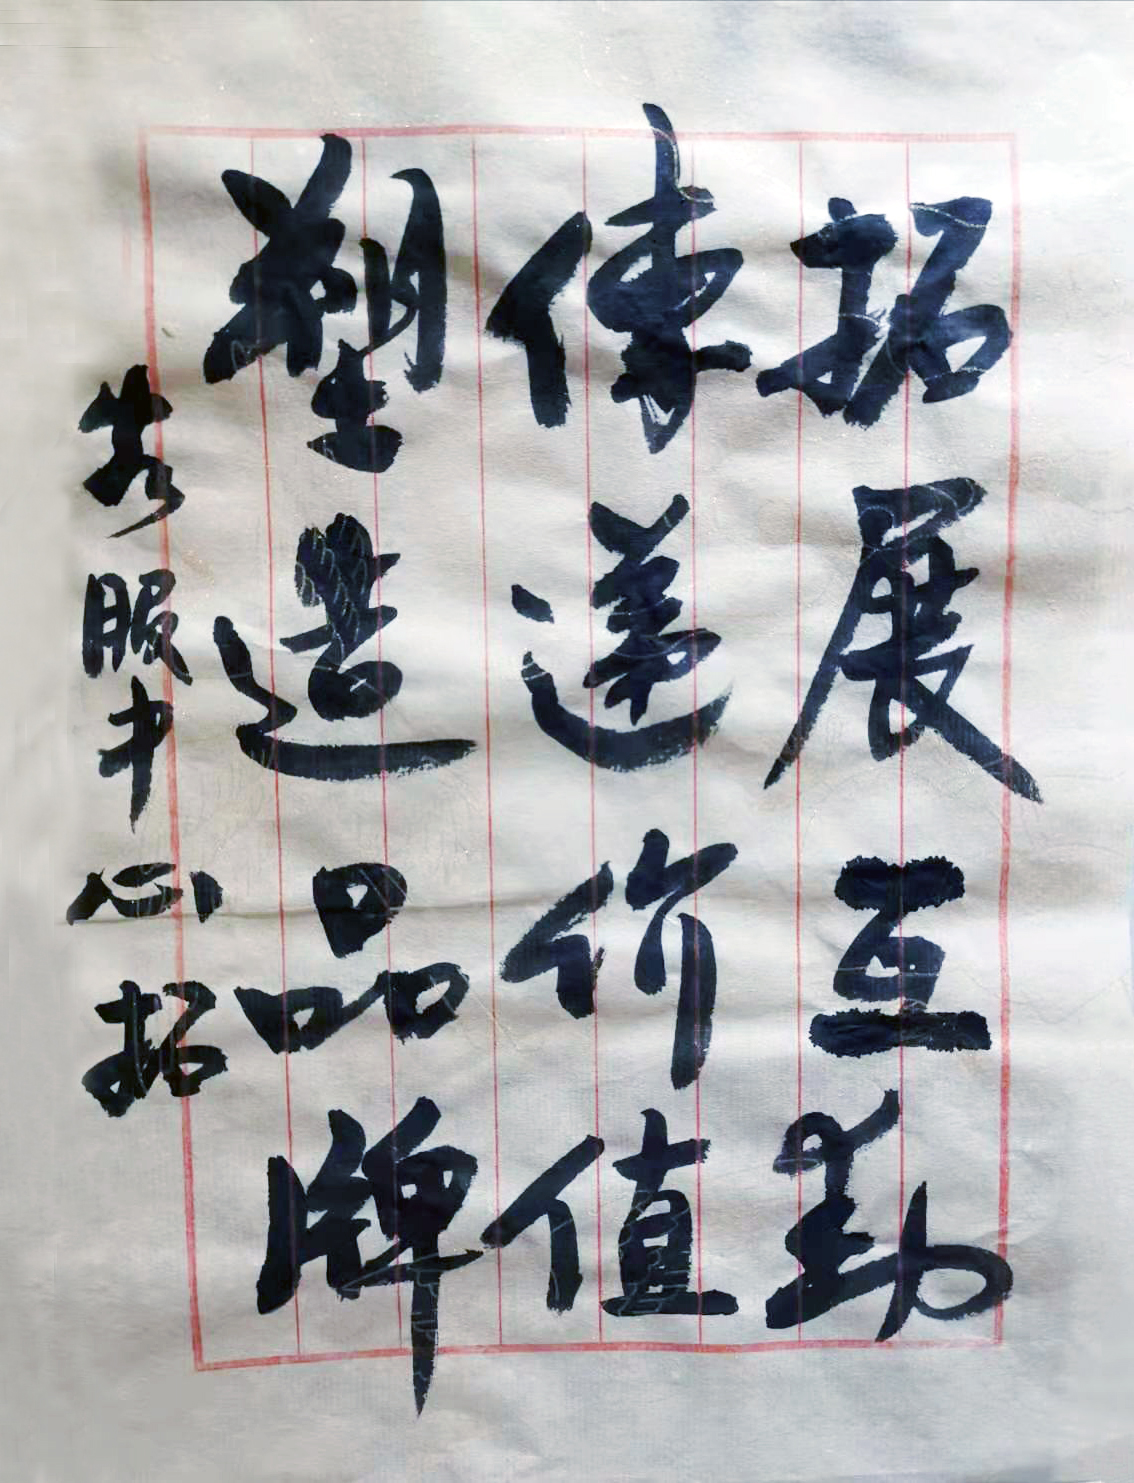 拓展互动
传递价值
塑造品牌
客服中心拓